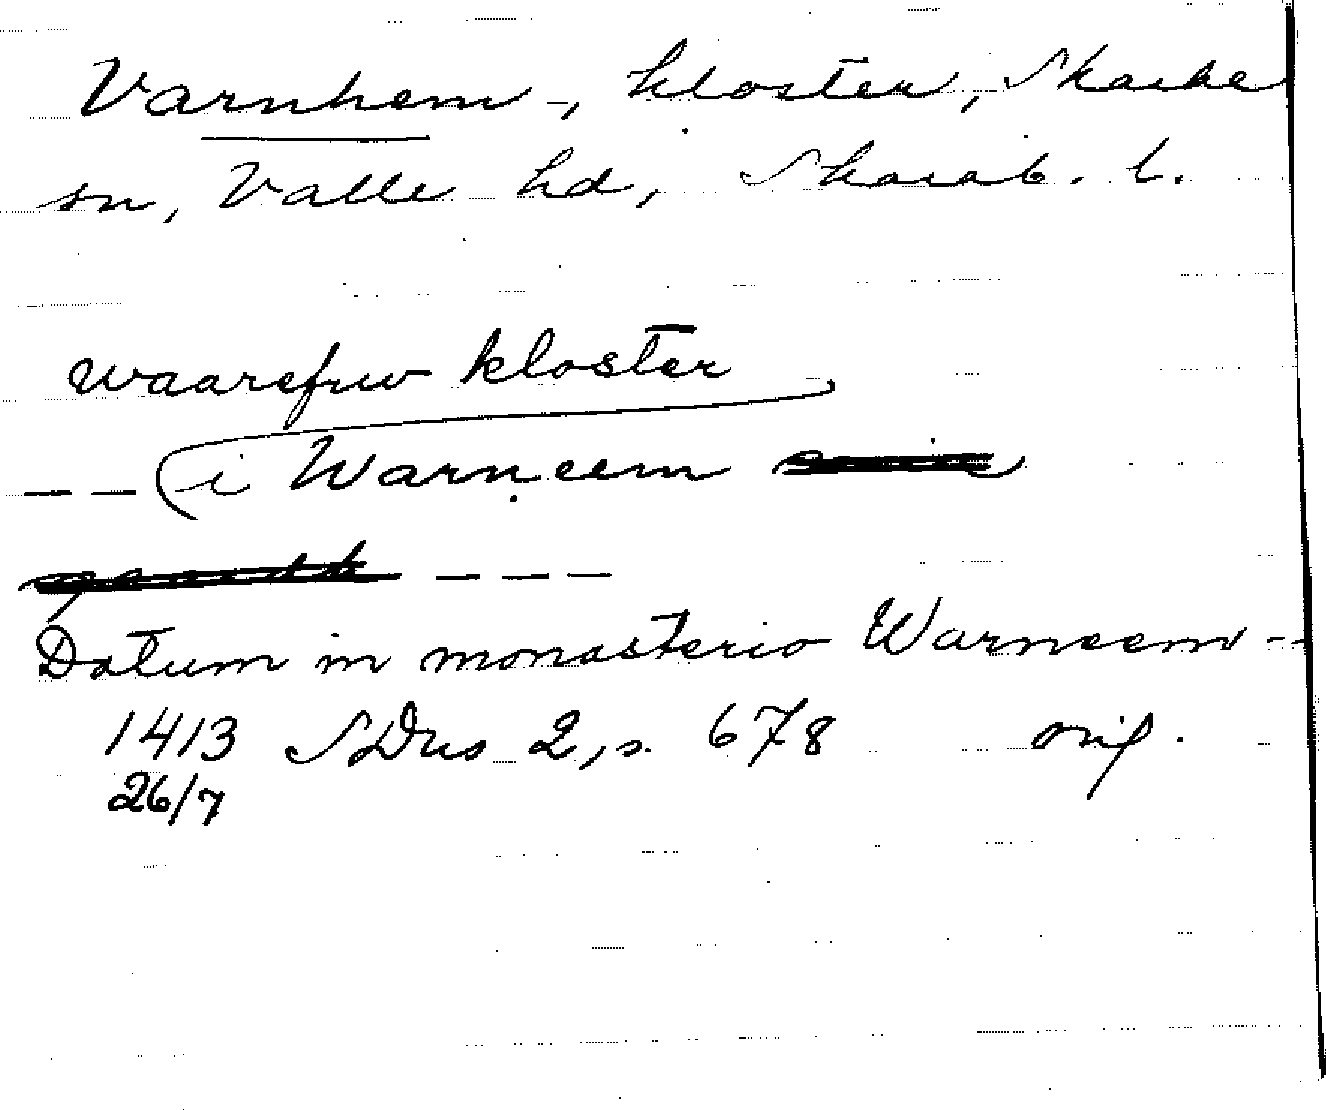 Varnhem -, kloster, Skarke
sn, Valle hd, Skarab. l.
waarefrw kloster
-- i Warneem
---
Datum in monasterio Warneem --
1413 SDns 2, s. 678 orig.
26/7